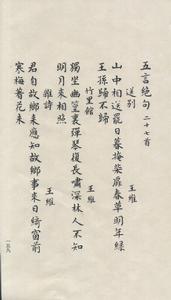 五言絕句 二十七首
送別 王維
山中相送罷日暮掩柴扉春草明年綠
王孫歸不歸
竹里館 王維
獨坐幽篁裏彈琴復長嘯深林人不知
明月來相照
雜詩 王維
君自故鄉來應知故鄉事來日綺窗前
寒梅著花未
一五九